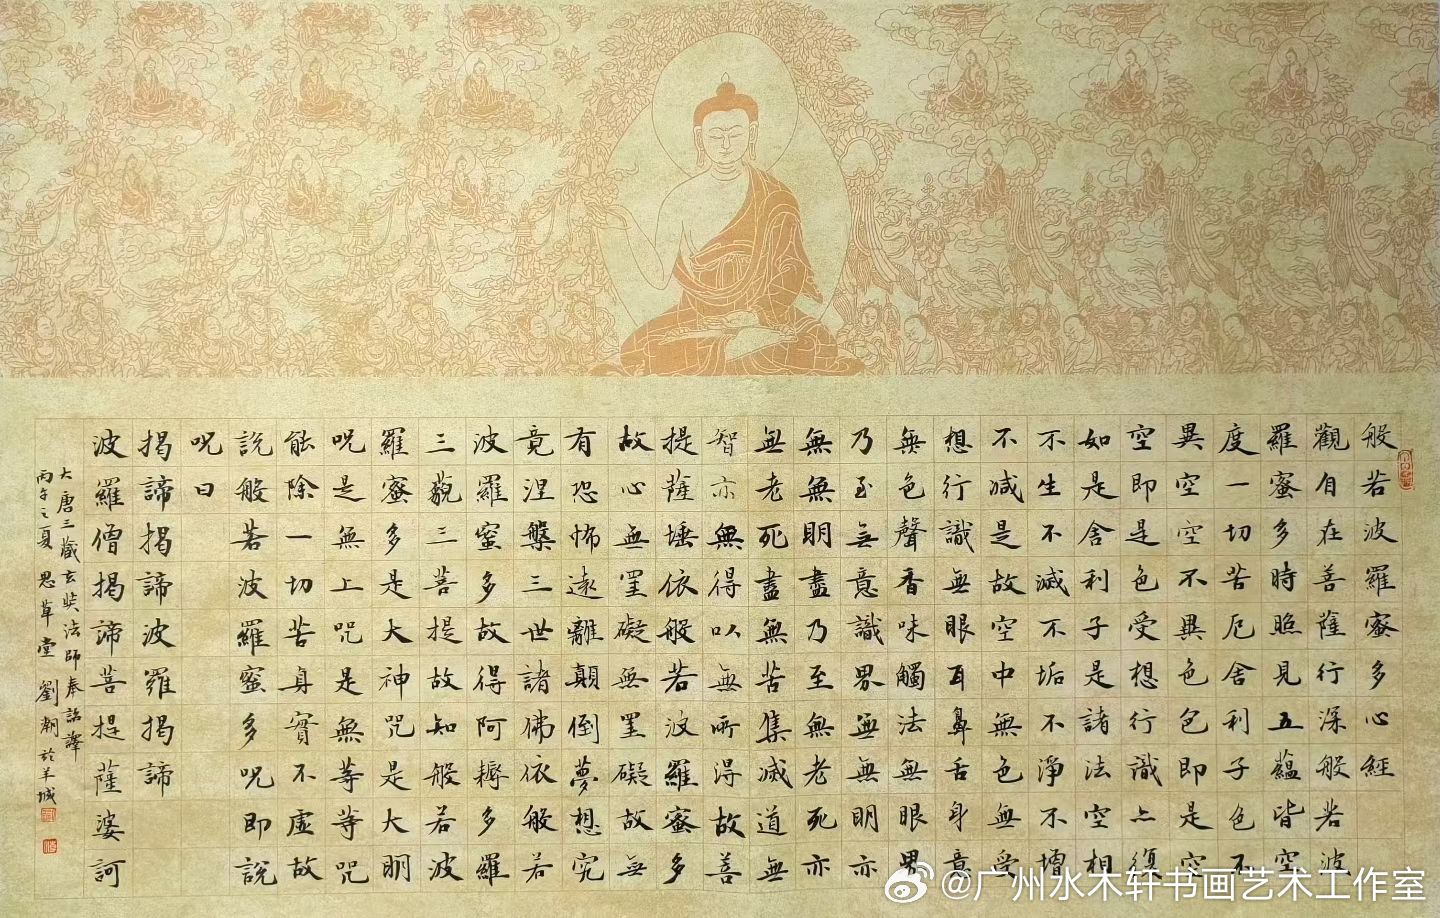 般若波羅蜜多心經
觀自在菩薩行深般若波
羅蜜多時照見五蘊皆空
度一切苦厄舍利子色不
異空空不異色色即是空
空即是色受想行識亦復
如是舍利子是諸法空相
不生不滅不垢不淨不增
不減是故空中無色無受
想行識無眼耳鼻舌身意
無色聲香味觸法無眼界
乃至無意識界無無明亦
無無明盡乃至無老死亦
無老死盡無苦集滅道無
智亦無得以無所得故菩
提薩埵依般若波羅蜜多
故心無罣礙無罣礙故無
有恐怖遠離顛倒夢想究
竟涅槃三世諸佛依般若
波羅蜜多故得阿耨多羅
三藐三菩提故知般若波
羅蜜多是大神咒是大明
呪是無上呪是無等等呪
能除一切苦真實不虛故
說般若波羅蜜多呪即說
呪曰
揭諦揭諦波羅揭諦
波羅僧揭諦菩提薩婆訶
大唐三藏玄奘法師奉詔譯
丙午之夏思草堂劉潮於羊城
@广州水木轩书画艺术工作室